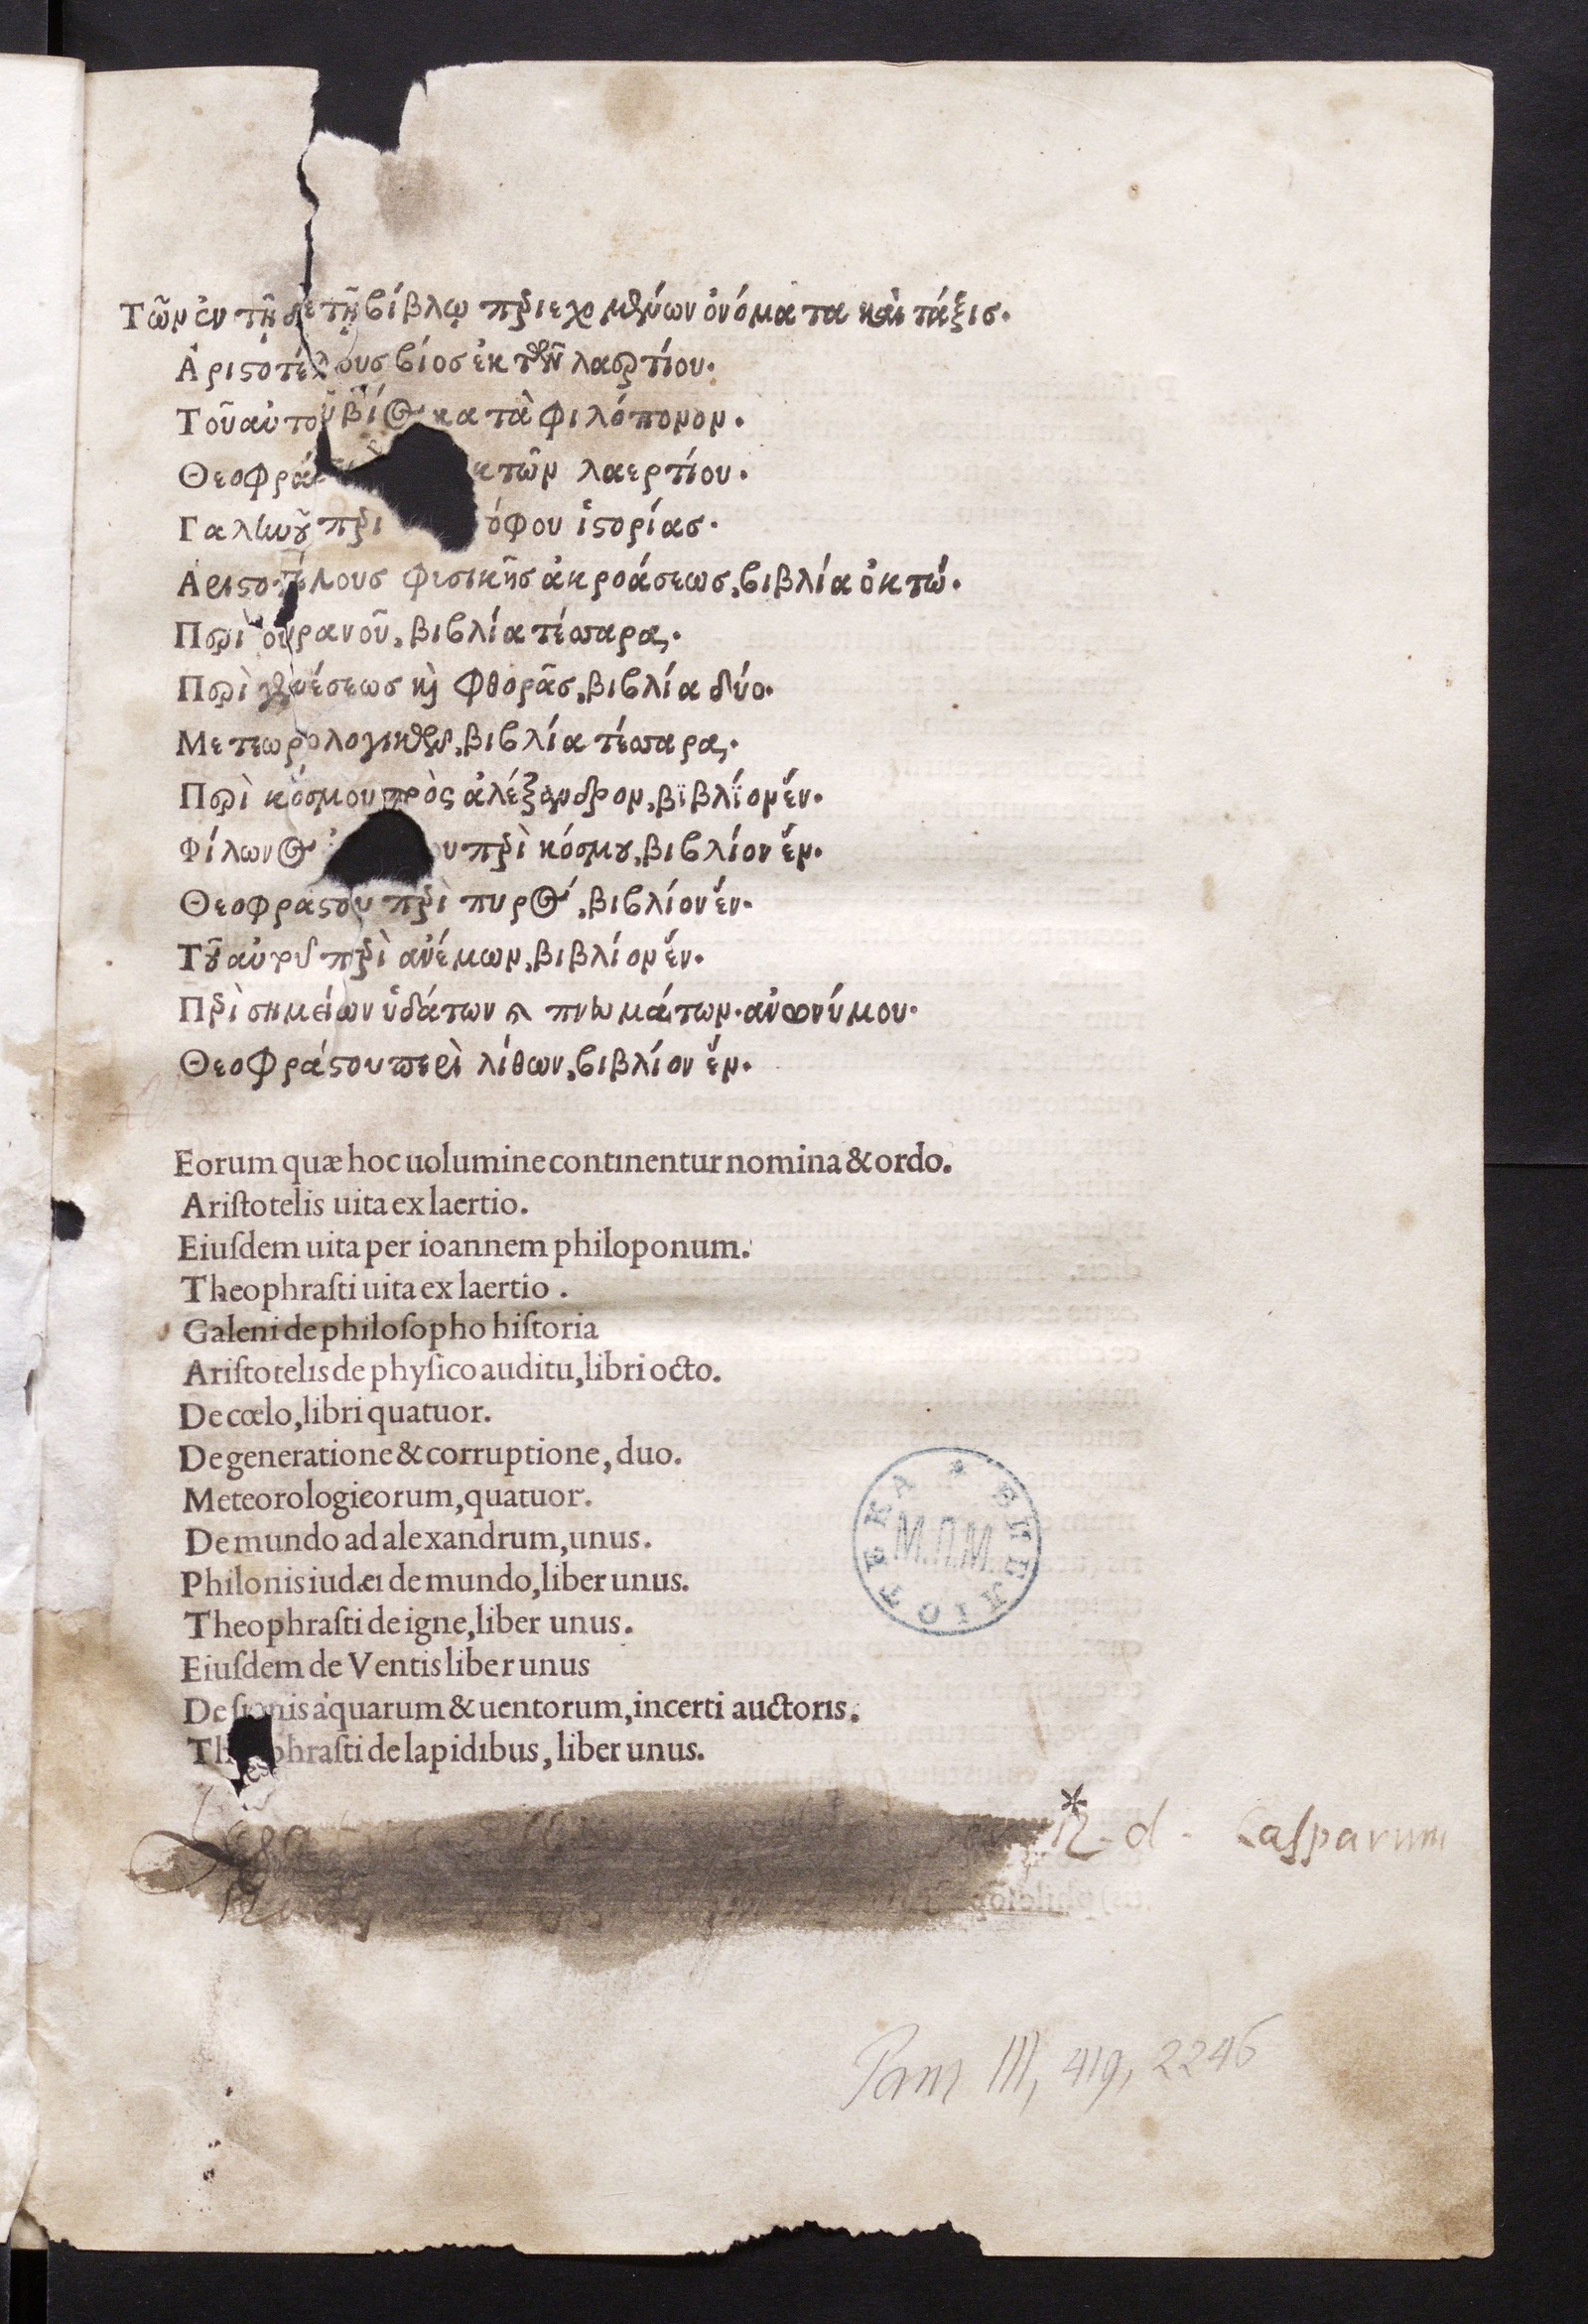 Τῶν ἐν τῇδε τῇ βίβλῳ περιεχομένων ὀνόματα καὶ τάξις.
Ἀριστοτέλους βίος ἐκ τῶν λαερτίου.
Τοῦ αὐτοῦ βίος κατὰ φιλόπονον.
κ τῶν λαερτίου.
Γαληνοῦ περὶ όφου ἱστορίας.
Ἀριστοτέλους φισικῆς ἀκροάσεως, βιβλία ὀκτώ.
Περὶ οὐρανοῦ, βιβλία τέσσαρα.
Περὶ γενέσεως καὶ φθορᾶς, βιβλία δύο.
Μετεωρολογικῶν, βιβλία τέσσαρα.
Περὶ κόσμου πρὸς ἀλέξανδρον, βϊβλΐον ἕν.
Φίλωνος ου περὶ κόσμου, βιβλίον ἕν.
Θεοφράστου περὶ πυρός, βιβλίον ἕν.
Τοῦ αὐτοῦ περὶ ἀνέμων, βιβλίον ἕν.
Περὶ σημείων ὑδάτων καὶ πνευμάτων. ἀνωνύμου.
Θεοφράστου περὶ λίθων, βιβλίον ἕν.
Eorum quæ hoc uolumine continentur nomina & ordo.
Ariſtotelis uita ex laertio.
Eiuſdem uita per ioannem philoponum.
Theophraſti uita ex laertio.
Galeni de philoſopho hiſtoria
Ariſtotelis de phyſico auditu, libri octo.
De cœlo, libri quatuor.
De generatione & corruptione, duo.
Meteorologicorum, quatuor.
De mundo ad alexandrum, unus.
Philonis iudæi de mundo, liber unus.
Theophraſti de igne, liber unus.
Eiuſdem de Ventis liber unus
De ſignis aquarum & uentorum, incerti auctoris.
Theophraſti de lapidibus, liber unus.
* R. d. Caſparum
M.N.M.
Pam III, 419, 2246